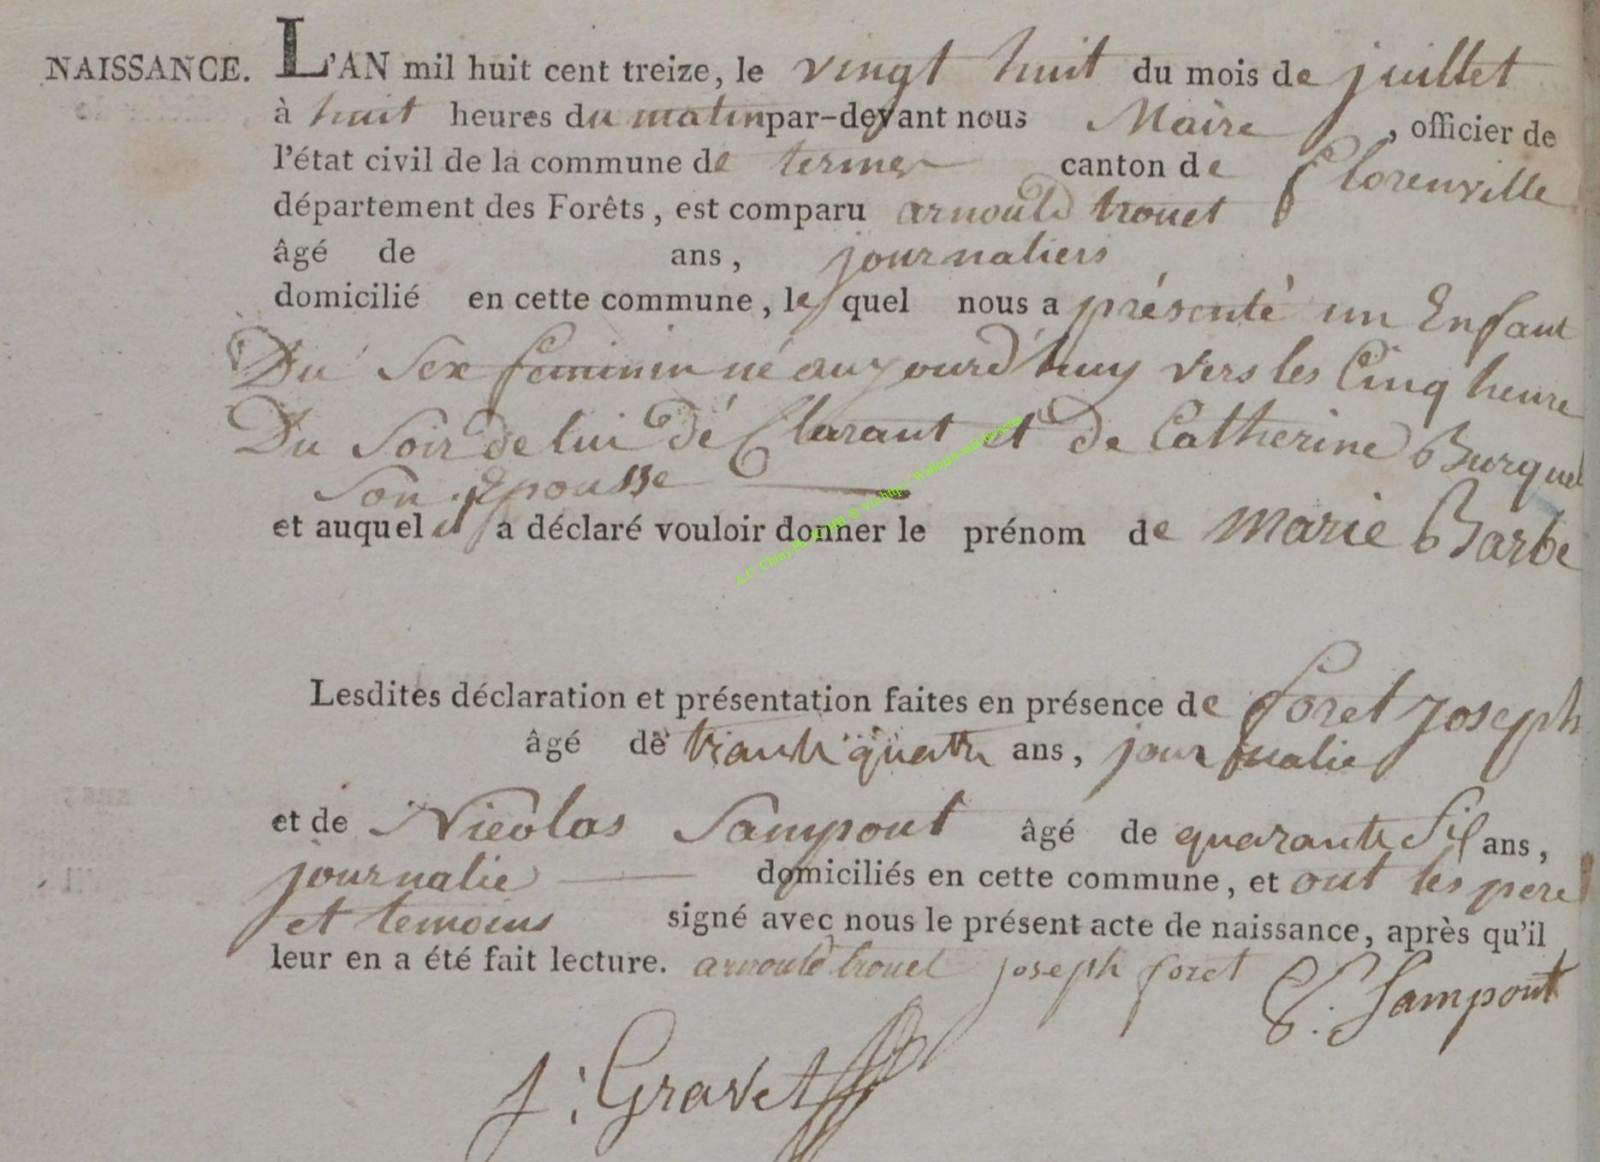 NAISSANCE. L'AN mil huit cent treize, le vingt huit du mois de juillet
à huit heures du matin par-devant nous Maire, officier de
l'état civil de la commune de termes canton de florenville
département des Forêts, est comparu arnould trouet
âgé de ans, journaliers
domicilié en cette commune, le quel nous a présenté un Enfant
Du Sex feminin né aujourd'huy vers les Cinq heure
Du Soir de lui dé Clarant et de Catherine Burquel
Son Epousse
et auquel il a déclaré vouloir donner le prénom de Marie Barbe
Lesdites déclaration et présentation faites en présence de foret Joseph
âgé de trante quatre ans, journalie
et de Nicolas Sampont âgé de quarante Six ans,
journalie domiciliés en cette commune, et ont les pere
et temoins signé avec nous le présent acte de naissance, après qu'il
leur en a été fait lecture. arnould trouet joseph foret
Sampont
J: Gravet